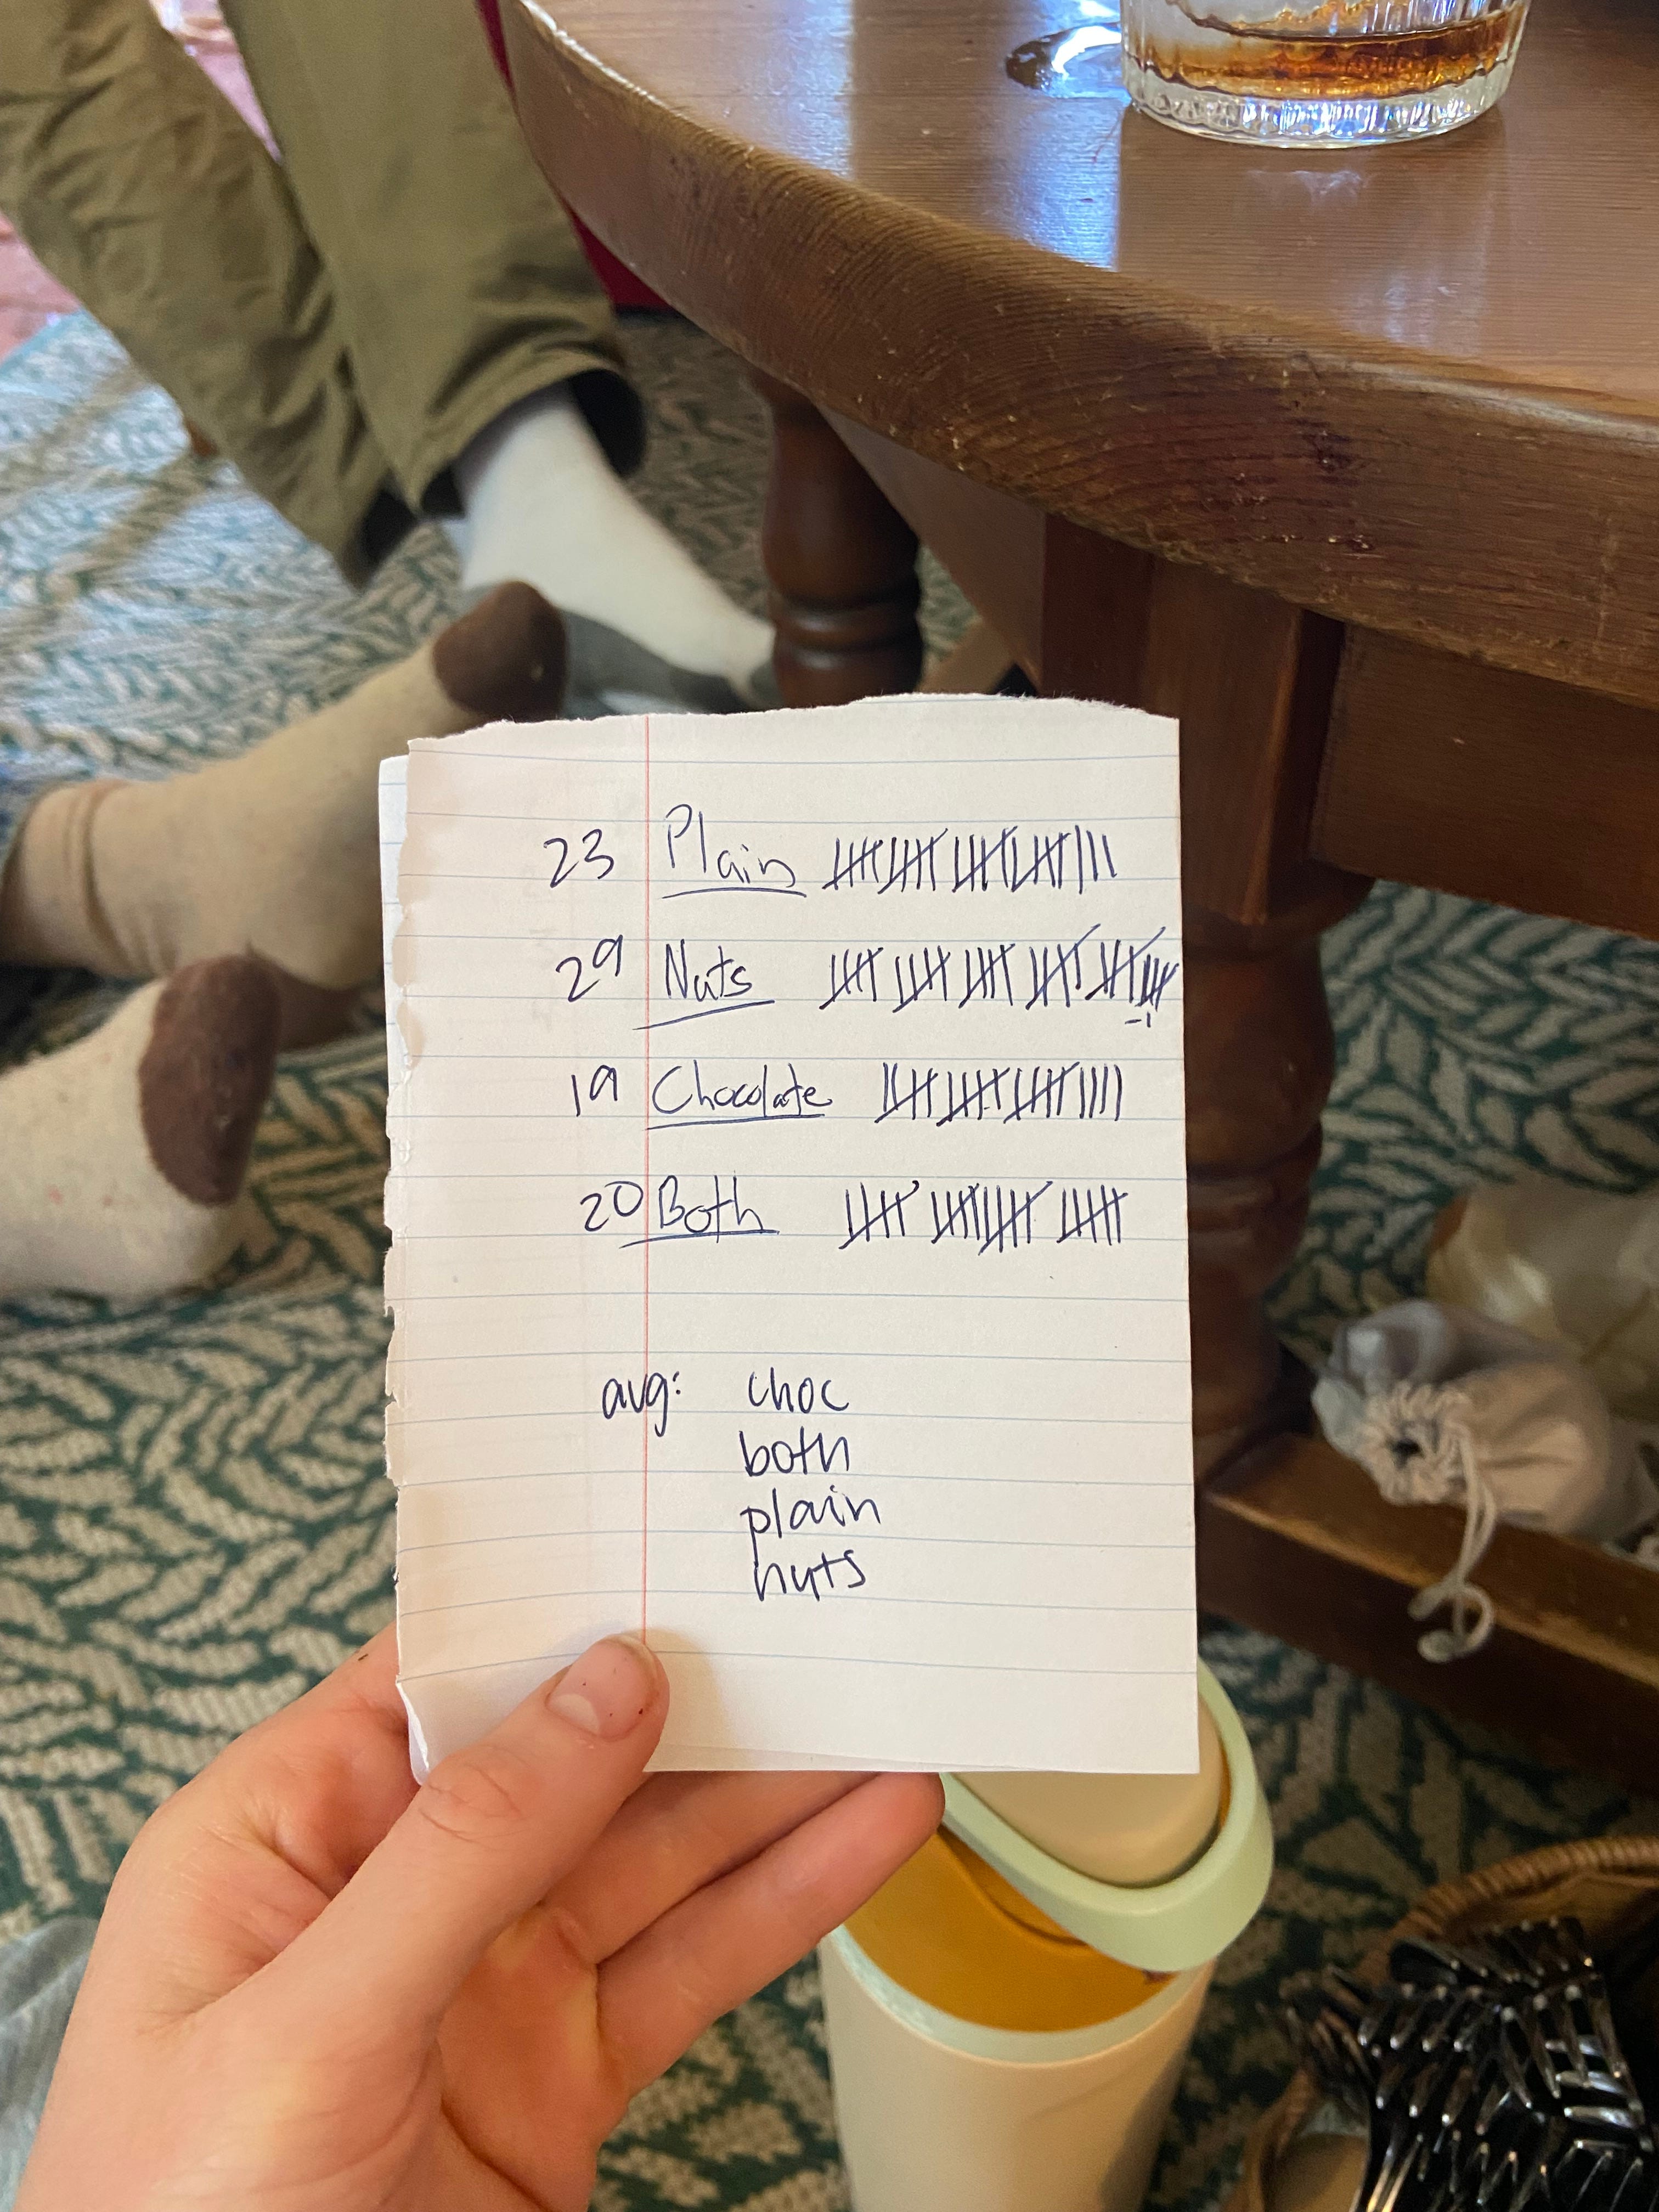 23 Plain
29 Nuts
-1
19 Chocolate
20 Both
avg: choc
both
plain
nuts